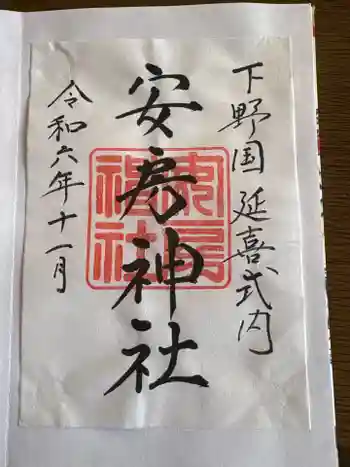 下野国 延喜式内
安房神社
令和六年十一月